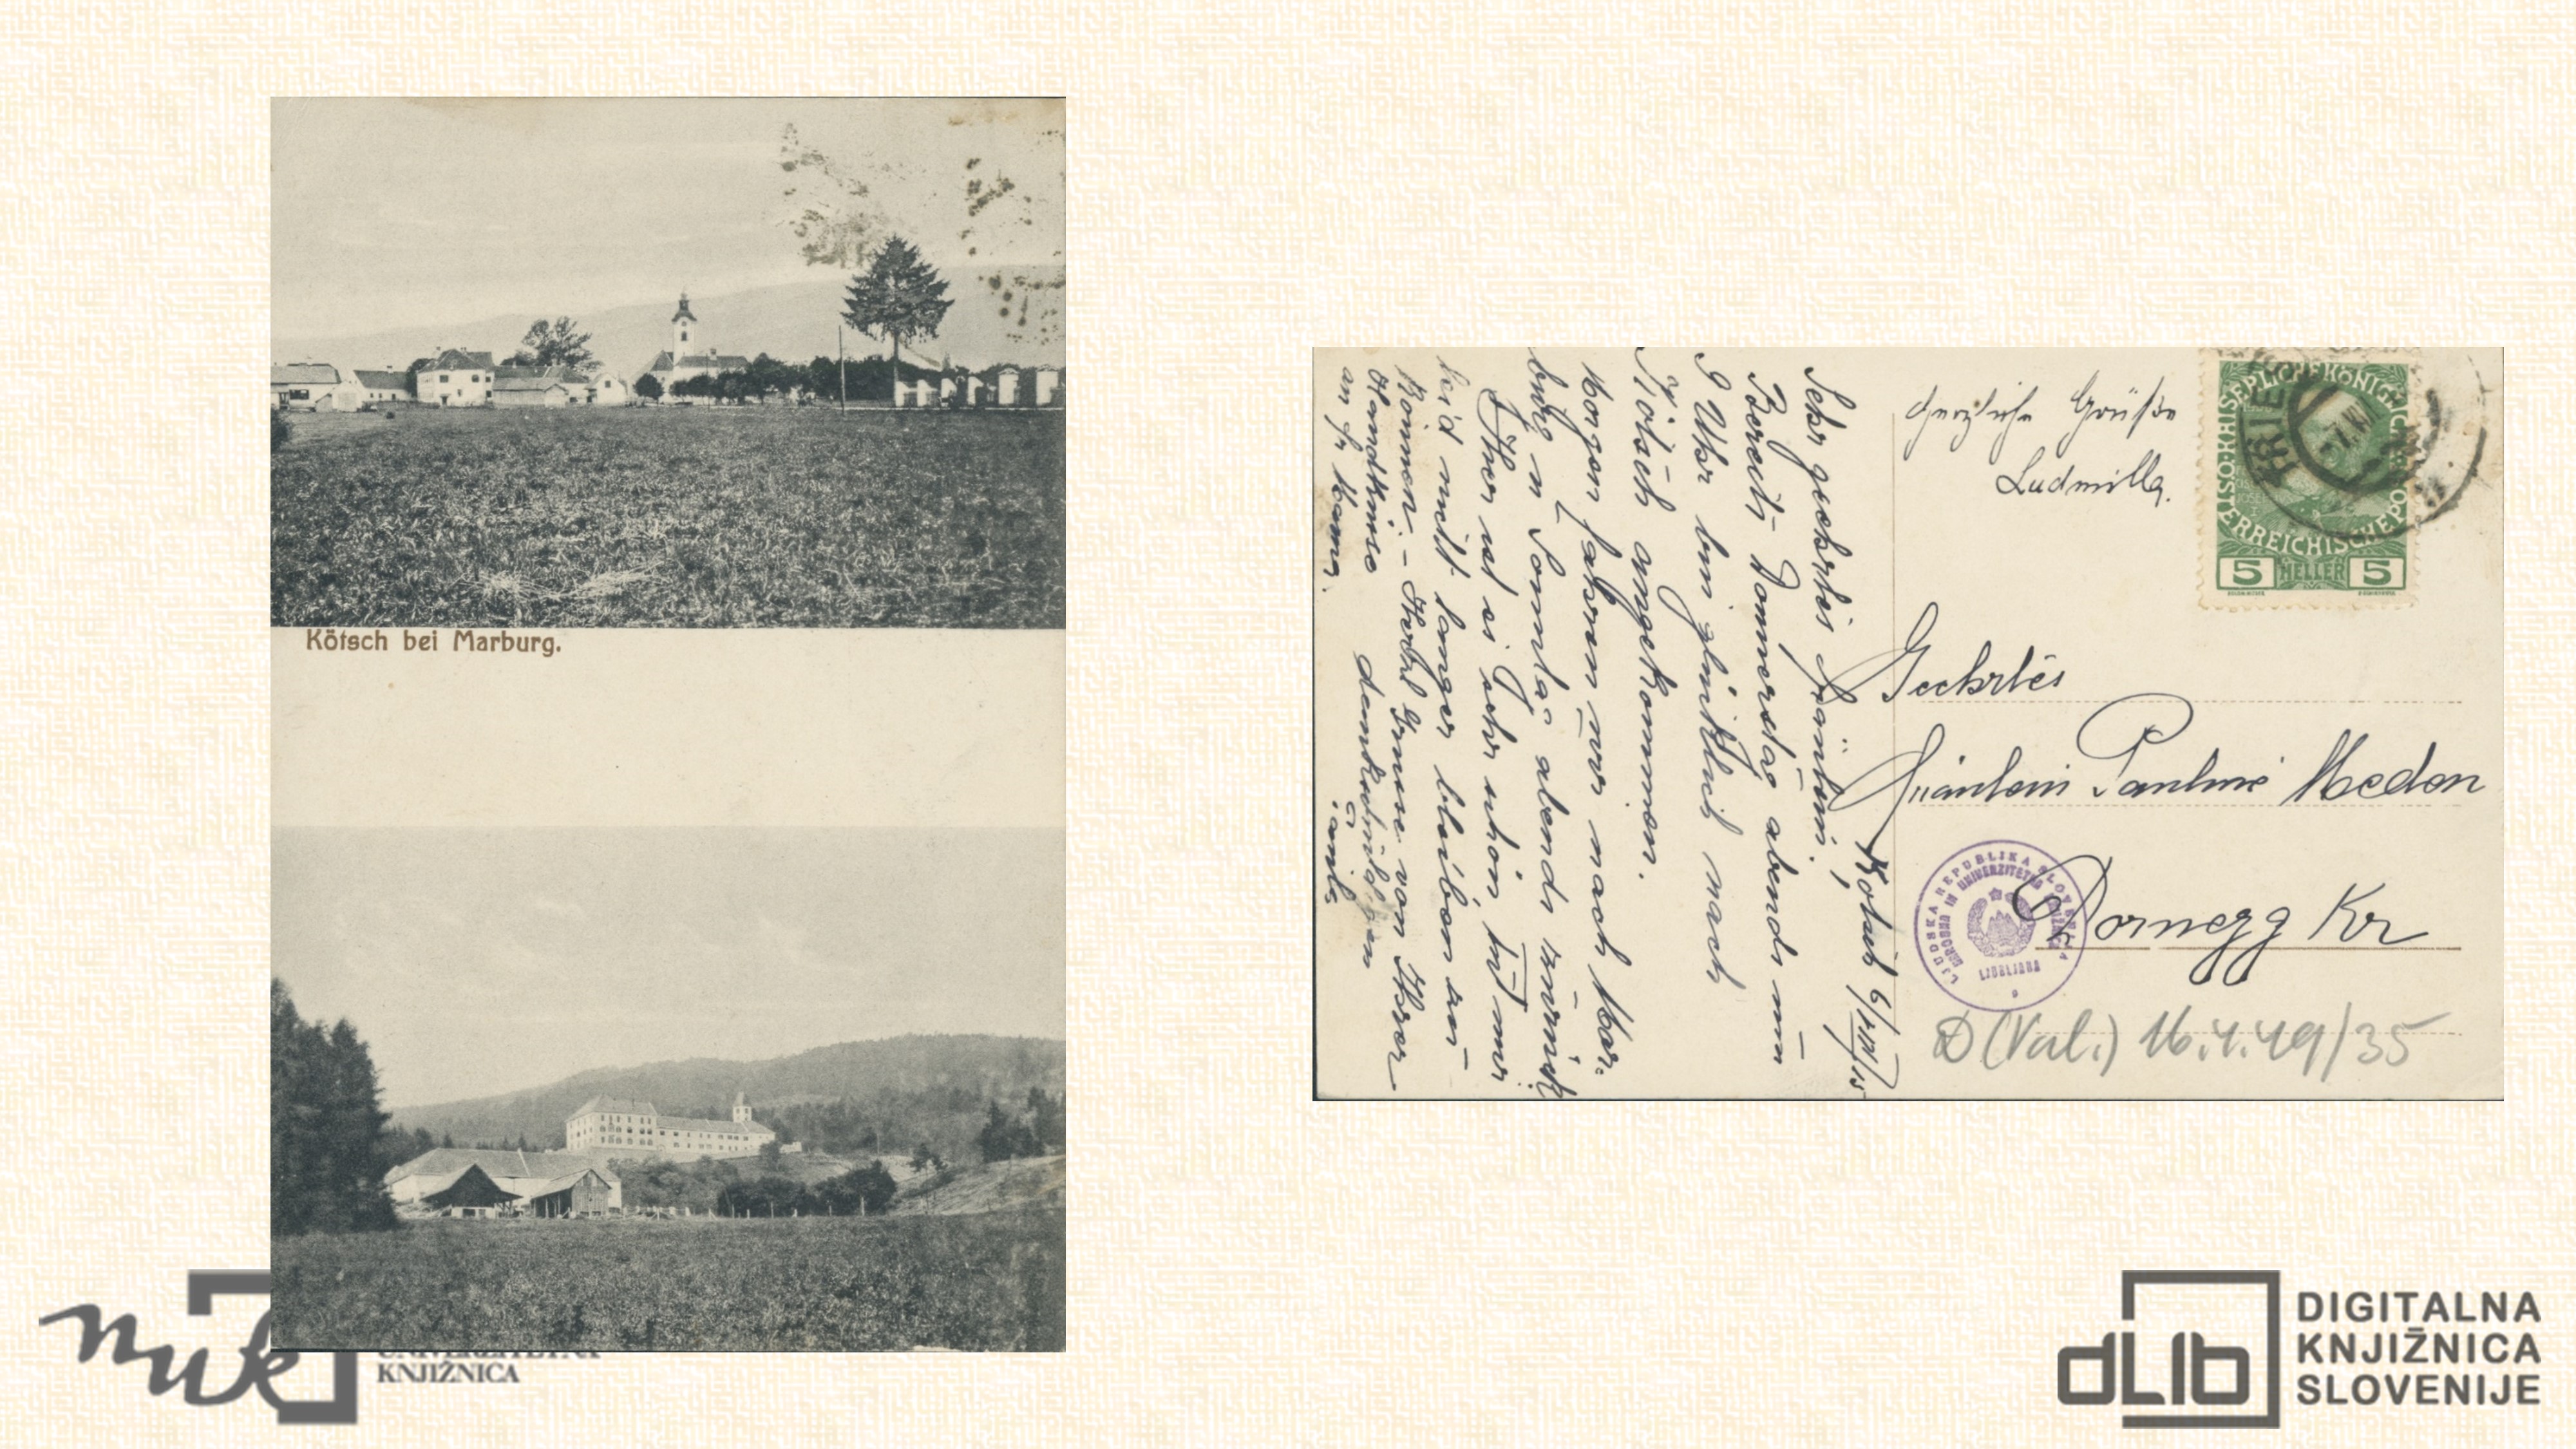 Kötsch bei Marburg.
UNIVERZITETNA
KNJIŽNICA
Kötsch 6/VIII/15
Sehr geehrtes Fräulein!
Bereits Donnerstag abends um
9 Uhr bin glücklich nach
Kötsch angekommen.
Morgen fahren wir nach Mar-
burg u Sonntag abends zurück.
Hier ist es sehr schön tut mir
leid nicht länger bleiben zu
können. – Grüsse von Ihrer
Handküsse
an Fr Mama.
Herzliche Grüße
Ludmilla.
KAISERLICHE KÖNIGLICHE
ÖSTERREICHISCHE POST
5 HELLER 5
Geehrtes
Fräulein Pauline Meden
Dornegg Kr
LJUDSKA REPUBLIKA SLOVENIJA
NARODNA IN UNIVERZITETNA
LJUBLJANA
D (Val.) 16.4.49/35
nuk
dLib
DIGITALNA
KNJIŽNICA
SLOVENIJE